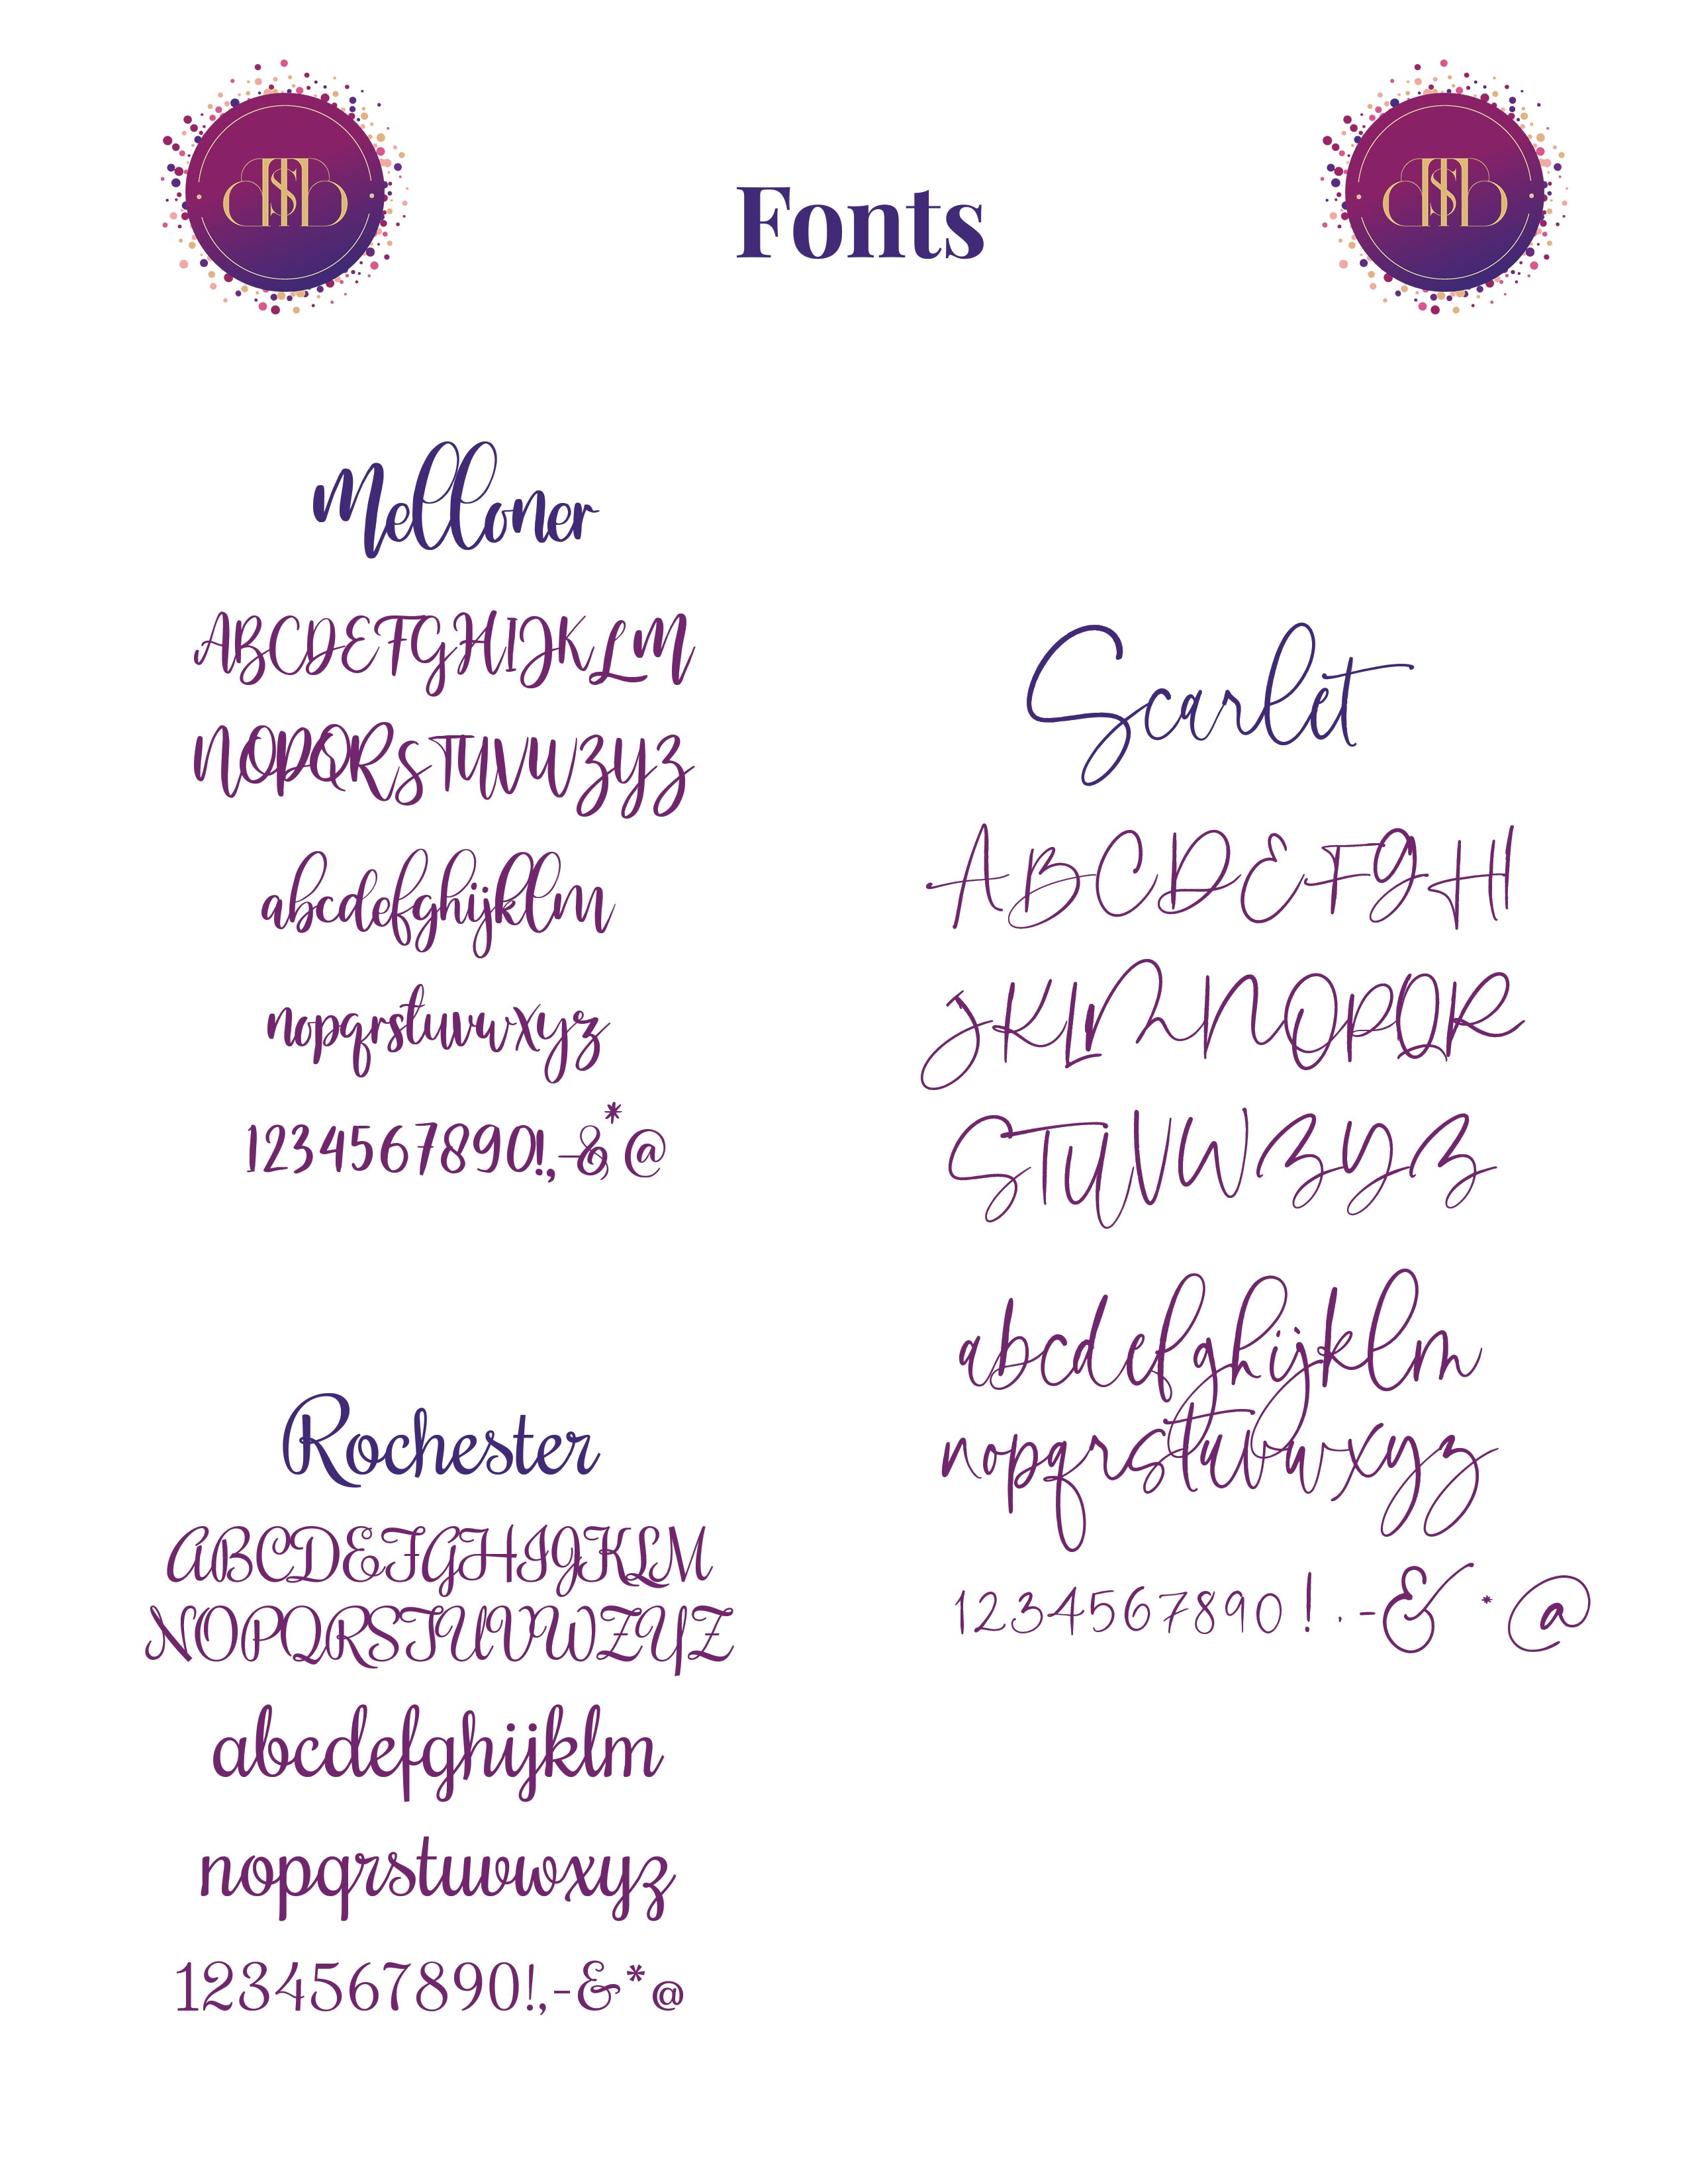 Fonts
Melloner
ABCDEFGHIJKLM
NOPQRSTUVWZYZ
abcdefghijklm
nopqrstuvwxyz
1234567890!,-&*@
Rochester
ABCDEFGHIJKLM
NOPQRSTUVWZYZ
abcdefghijklm
nopqrstuvwxyz
1234567890!,-&*@
Scarlet
ABCDEFGH
JKLMNOPQR
STUVWZYZ
abcdefghijklm
nopqrstuvwxyz
1234567890 ! . - & * @